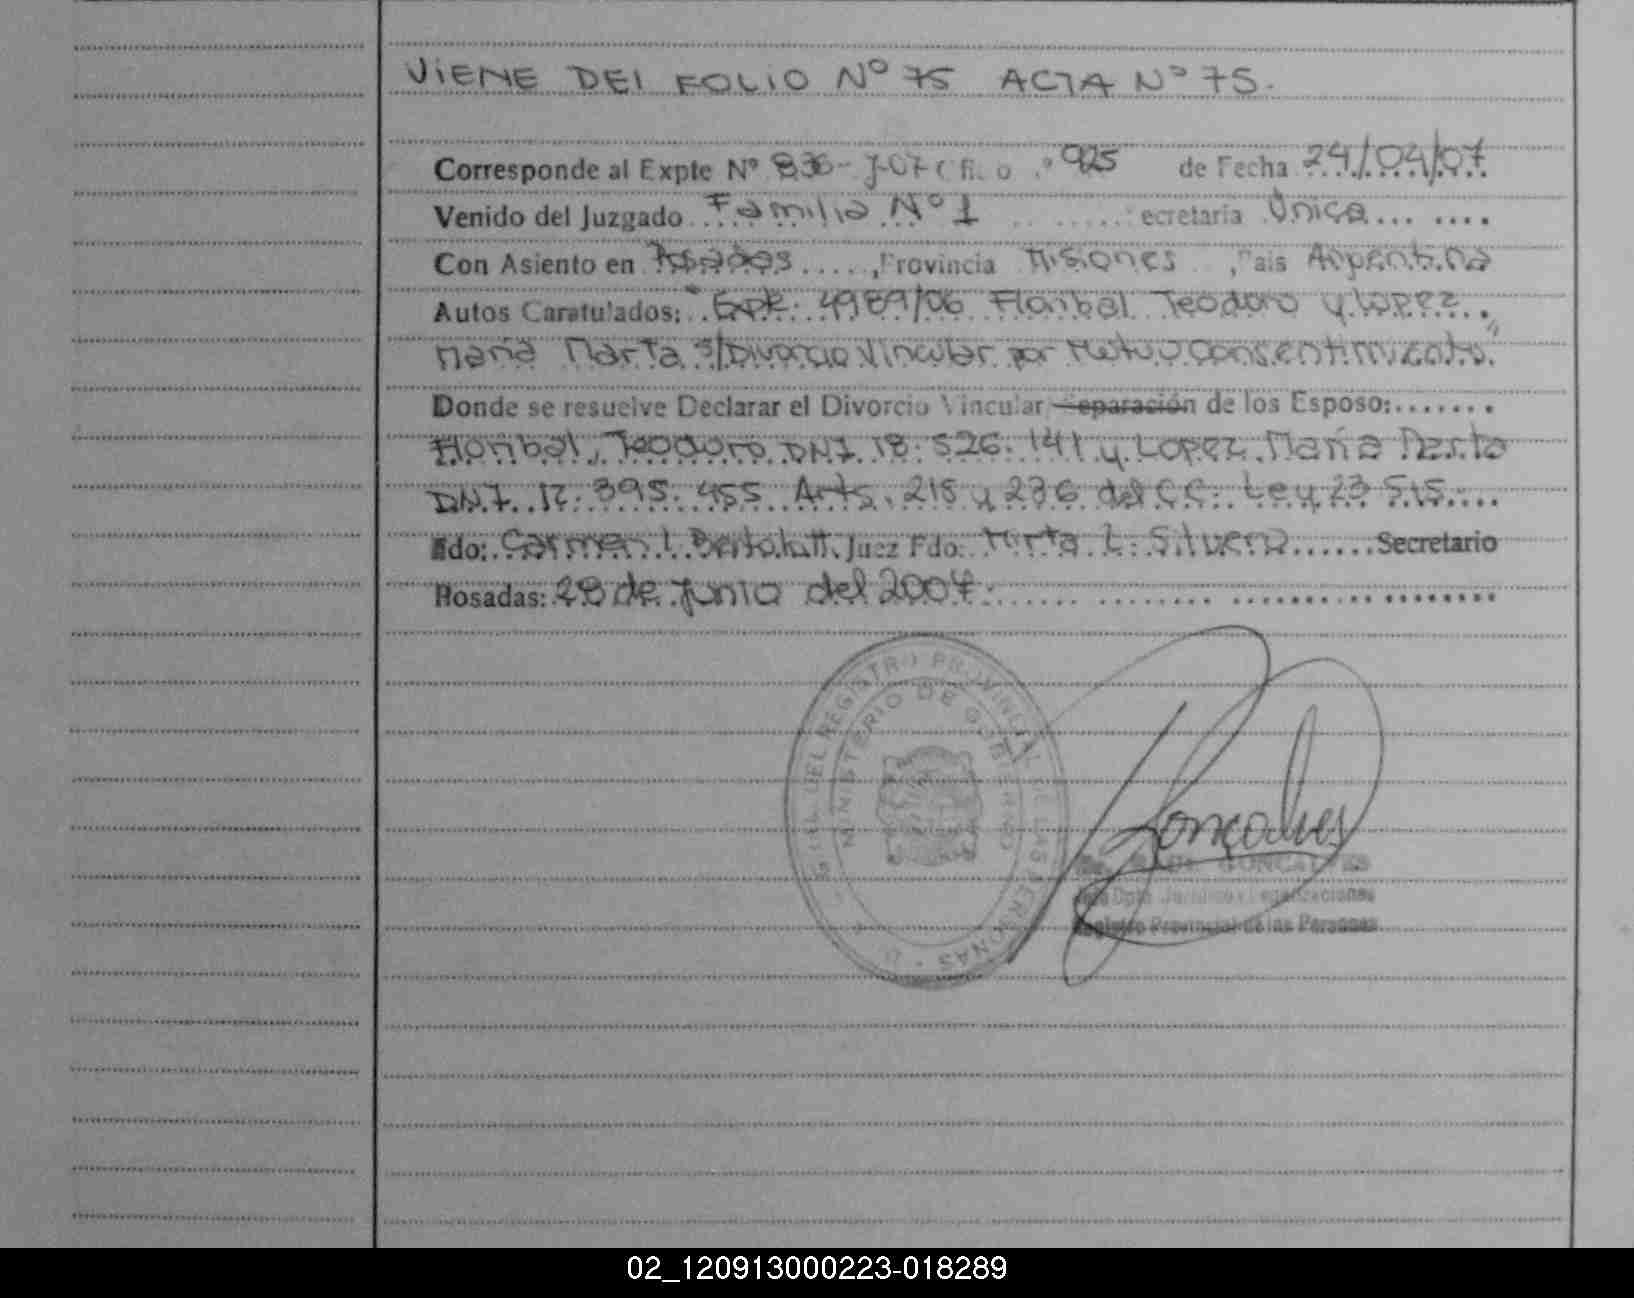 VIENE DEL FOLIO Nº 75 ACTA Nº 75.
Corresponde al Expte Nº 836-J-07 Ofic o Nº 925 de Fecha 24/04/07
Venido del Juzgado Familia Nº 1 Secretaría Única
Con Asiento en Posadas, Provincia Misiones, País Argentina
Autos Caratulados: "Expte: 4989/06 Floribal Teodoro y Lopez
María Marta s/Divorcio Vincular por Mutuo Consentimiento."
Donde se resuelve Declarar el Divorcio Vincular Separación de los Esposo:
Floribal, Teodoro DNI 18.526.141 y Lopez María Marta
DNI 17.395.455 Arts. 215 y 236 del C.C. Ley 23515
Fdo: Carmen L. Juez Fdo. Mirta L. Secretario
Posadas: 28 de Junio del 2007
REGISTRO PROVINCIAL DE LAS PERSONAS
MINISTERIO DE GOBIERNO
Goncalves
GONCALVES
Dpto Jurídico y Legalizaciones
Registro Provincial de las Personas
02_120913000223-018289